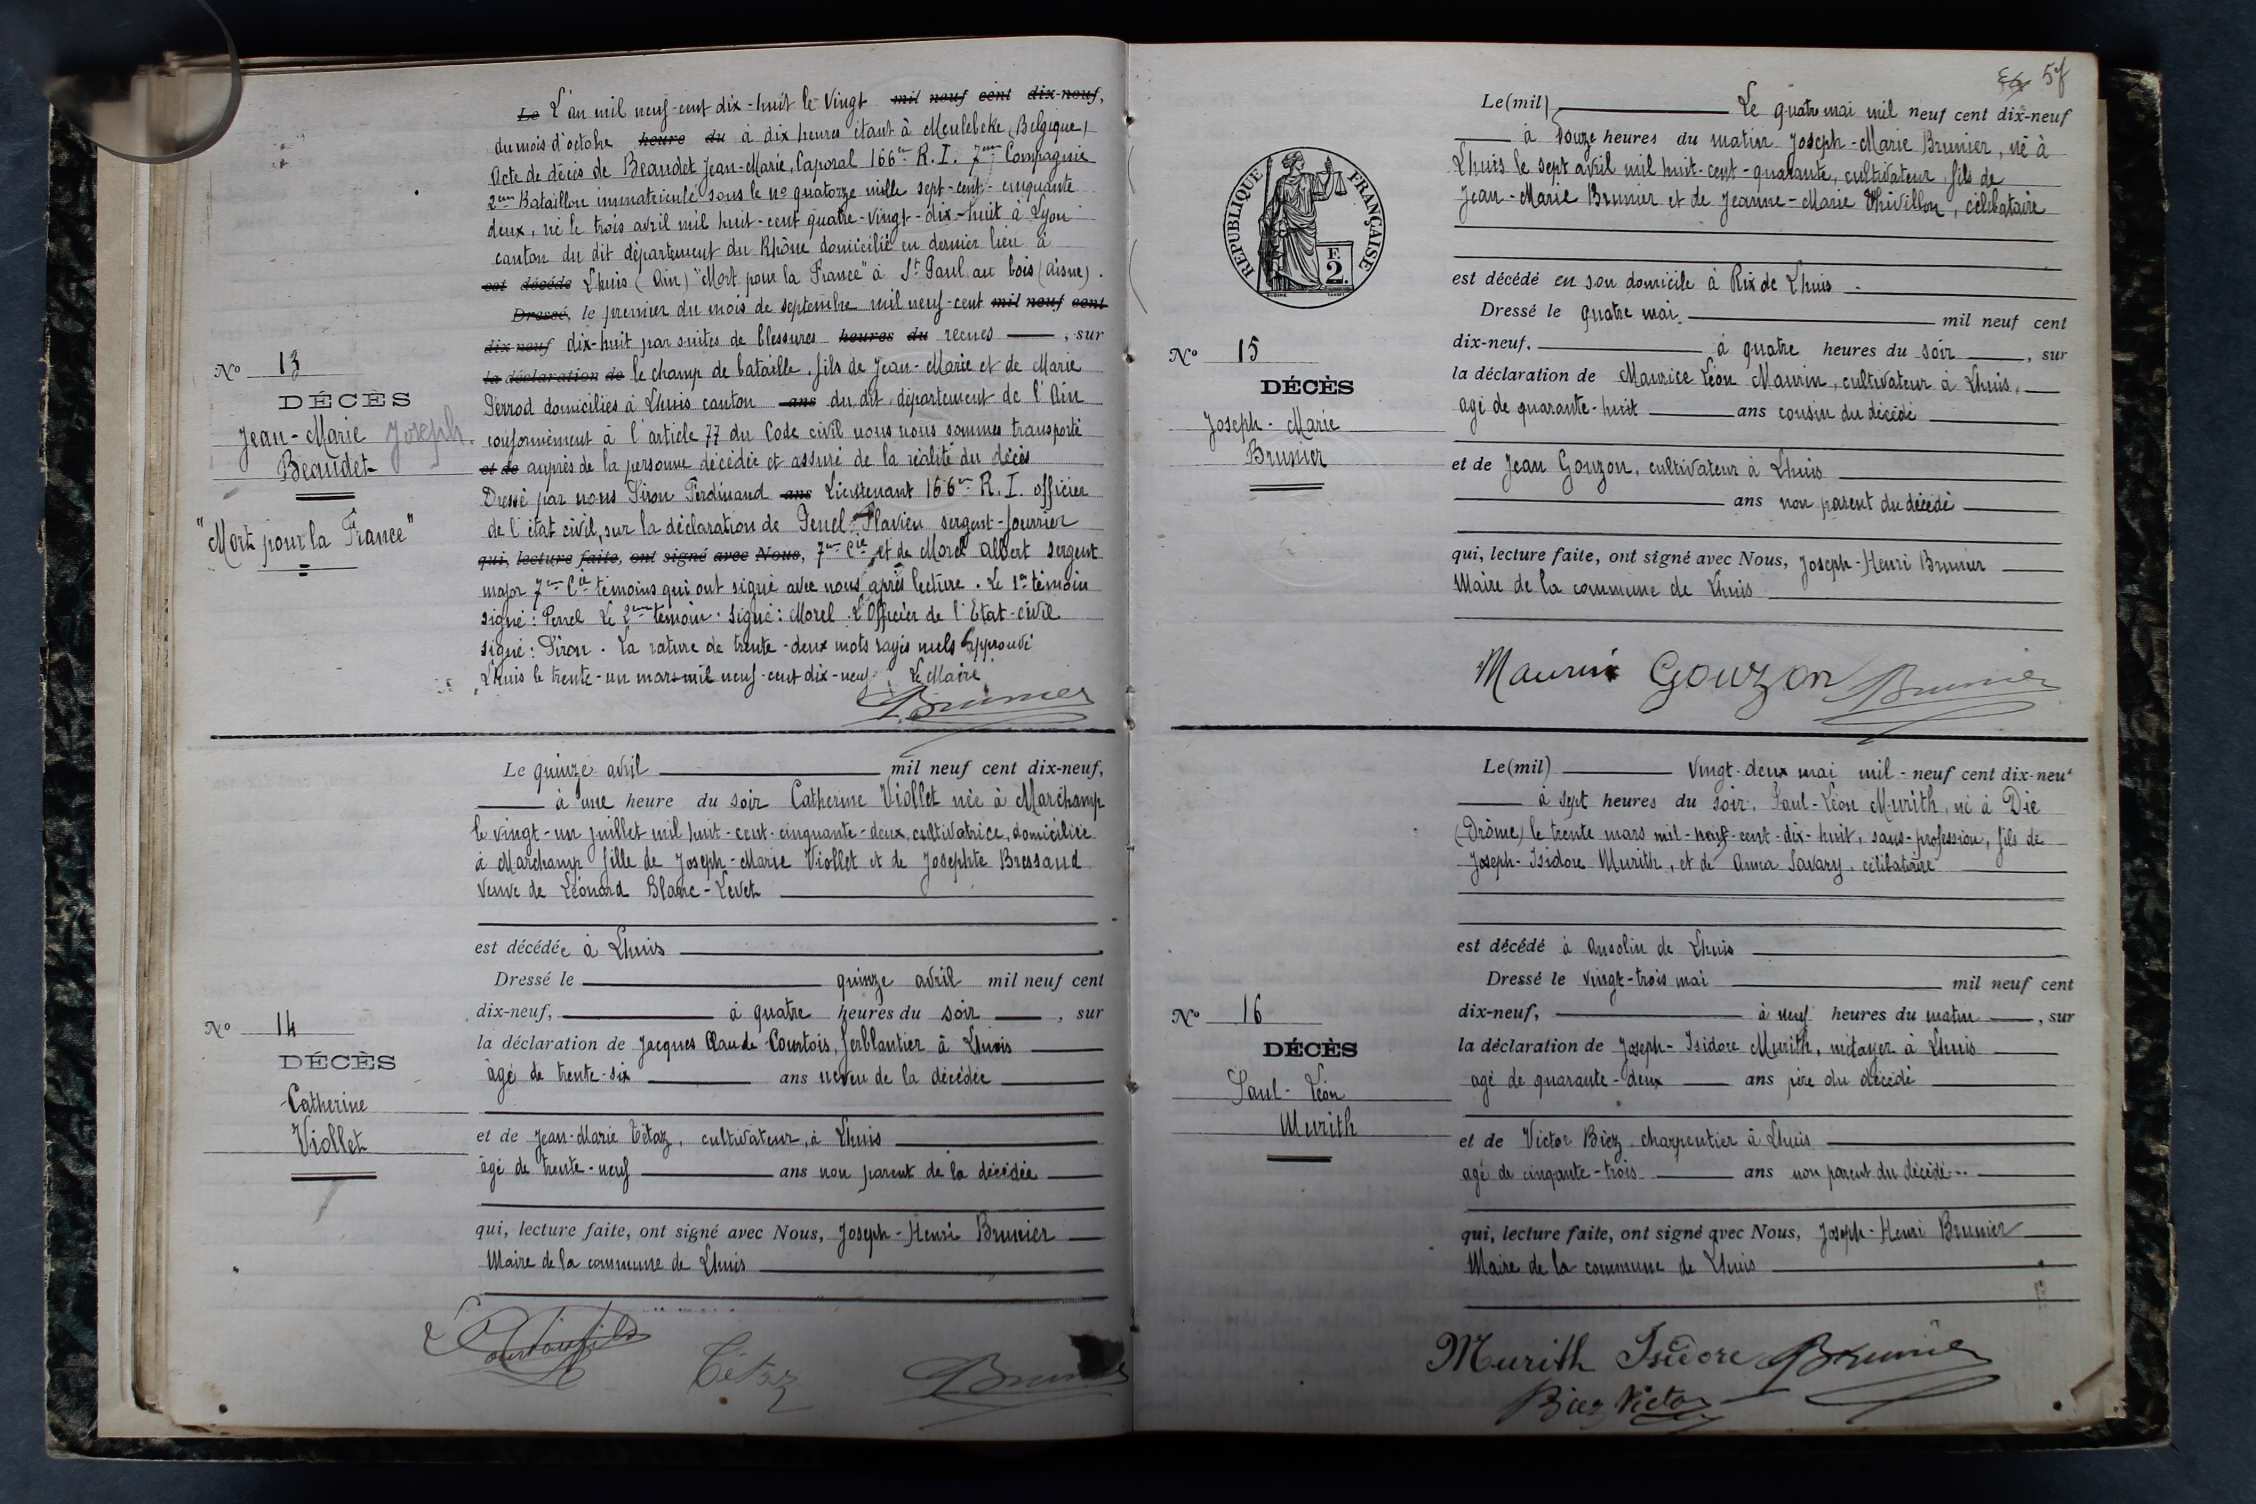 Le L'an mil neuf-cent dix-huit le vingt mil neuf cent dix-neuf,
du mois d'octobre heure du à dix heures étant à Meulebeke (Belgique)
Acte de décès de Beaudet Jean-Marie, Caporal 166e R.I. 7me Compagnie
2me Bataillon immatriculé sous le no quatorze mille sept-cent-cinquante
deux, né le trois avril mil huit-cent quatre-vingt-dix-huit à Lyon
canton du dit département du Rhône domicilié en dernier lieu à
est décédé Lhuis (Ain) "Mort pour la France" à St Paul au bois (Aisne).
Dressé, le premier du mois de septembre mil neuf-cent mil neuf cent
dix neuf dix-huit par suites de blessures heures du recues, sur
la déclaration de le champ de bataille, fils de Jean-Marie et de Marie
Perrod domiciliés à Lhuis canton ans du dit, département de l'Ain
conformément à l'article 77 du Code civil nous nous sommes transporté
et de auprès de la personne décédée et assuré de la réalité du décès
Dressé par nous Siron Ferdinand ans Lieutenant 166e R.I. officier
de l'état civil, sur la déclaration de Penel Flavien sergent-fourrier
qui, lecture faite, ont signé avec Nous, 7me Cie et de Morel Albert sergent
major 7me Cie témoins qui ont signé avec nous après lecture. Le 1er témoin
signé: Penel Le 2me témoin. signé: Morel. L'Officier de l'Etat-civil
signé: Siron. La rature de trente-deux mots rayés nuls approuvé
Lhuis le trente-un mars mil neuf-cent dix-neuf. Le Maire
Brunier
No 13
DÉCÈS
Jean-Marie Joseph.
Beaudet
"Mort pour la France"
Le quinze avril mil neuf cent dix-neuf,
à une heure du soir Catherine Viollet née à Marchamp
le vingt-un juillet mil huit-cent-cinquante-deux, cultivatrice, domiciliée
à Marchamp fille de Joseph-Marie Viollet et de Josephte Bressand
veuve de Léonard Blanc-Levet
est décédée à Lhuis
Dressé le quinze avril mil neuf cent
dix-neuf, à quatre heures du soir, sur
la déclaration de Jacques Claude Courtois, ferblantier à Lhuis
âgé de trente-six ans neveu de la décédée
et de Jean-Marie Tétaz, cultivateur, à Lhuis
âgé de trente-neuf ans non parent de la décédée
qui, lecture faite, ont signé avec Nous, Joseph-Henri Brunier
Maire de la commune de Lhuis
No 14
DÉCÈS
Catherine
Viollet
Courtois fils
Tétaz
Brunier
57
Le (mil) Le quatre mai mil neuf cent dix-neuf
à douze heures du matin Joseph-Marie Brunier, né à
Lhuis le sept avril mil huit-cent-quarante, cultivateur, fils de
Jean-Marie Brunier et de Jeanne-Marie Thivillon, célibataire
REPUBLIQUE FRANÇAISE
F.
2.
est décédé en son domicile à Rix de Lhuis
Dressé le quatre mai mil neuf cent
dix-neuf, à quatre heures du soir, sur
la déclaration de Maurice Léon Maurin, cultivateur à Lhuis,
agé de quarante-huit ans cousin du décédé
et de Jean Gouzon, cultivateur à Lhuis
ans non parent du décédé
qui, lecture faite, ont signé avec Nous, Joseph-Henri Brunier
Maire de la commune de Lhuis
No 15
DÉCÈS
Joseph-Marie
Brunier
Maurin Gouzon Brunier
Le (mil) vingt-deux mai mil-neuf cent dix-neuf
à sept heures du soir, Paul-Léon Murith, né à Die
(Drôme) le trente mars mil-neuf-cent-dix-huit, sans-profession, fils de
Joseph-Isidore Murith, et de Anna Savary, célibataire
est décédé à Ansolin de Lhuis
Dressé le vingt-trois mai mil neuf cent
dix-neuf, à neuf heures du matin, sur
la déclaration de Joseph-Isidore Murith, métayer à Lhuis
agé de quarante-deux ans père du décédé
et de Victor Biez charpentier à Lhuis
agé de cinquante-trois ans non parent du décédé
qui, lecture faite, ont signé avec Nous, Joseph-Henri Brunier
Maire de la commune de Lhuis
No 16
DÉCÈS
Paul-Léon
Murith
Murith Isidore Brunier
Biez Victor